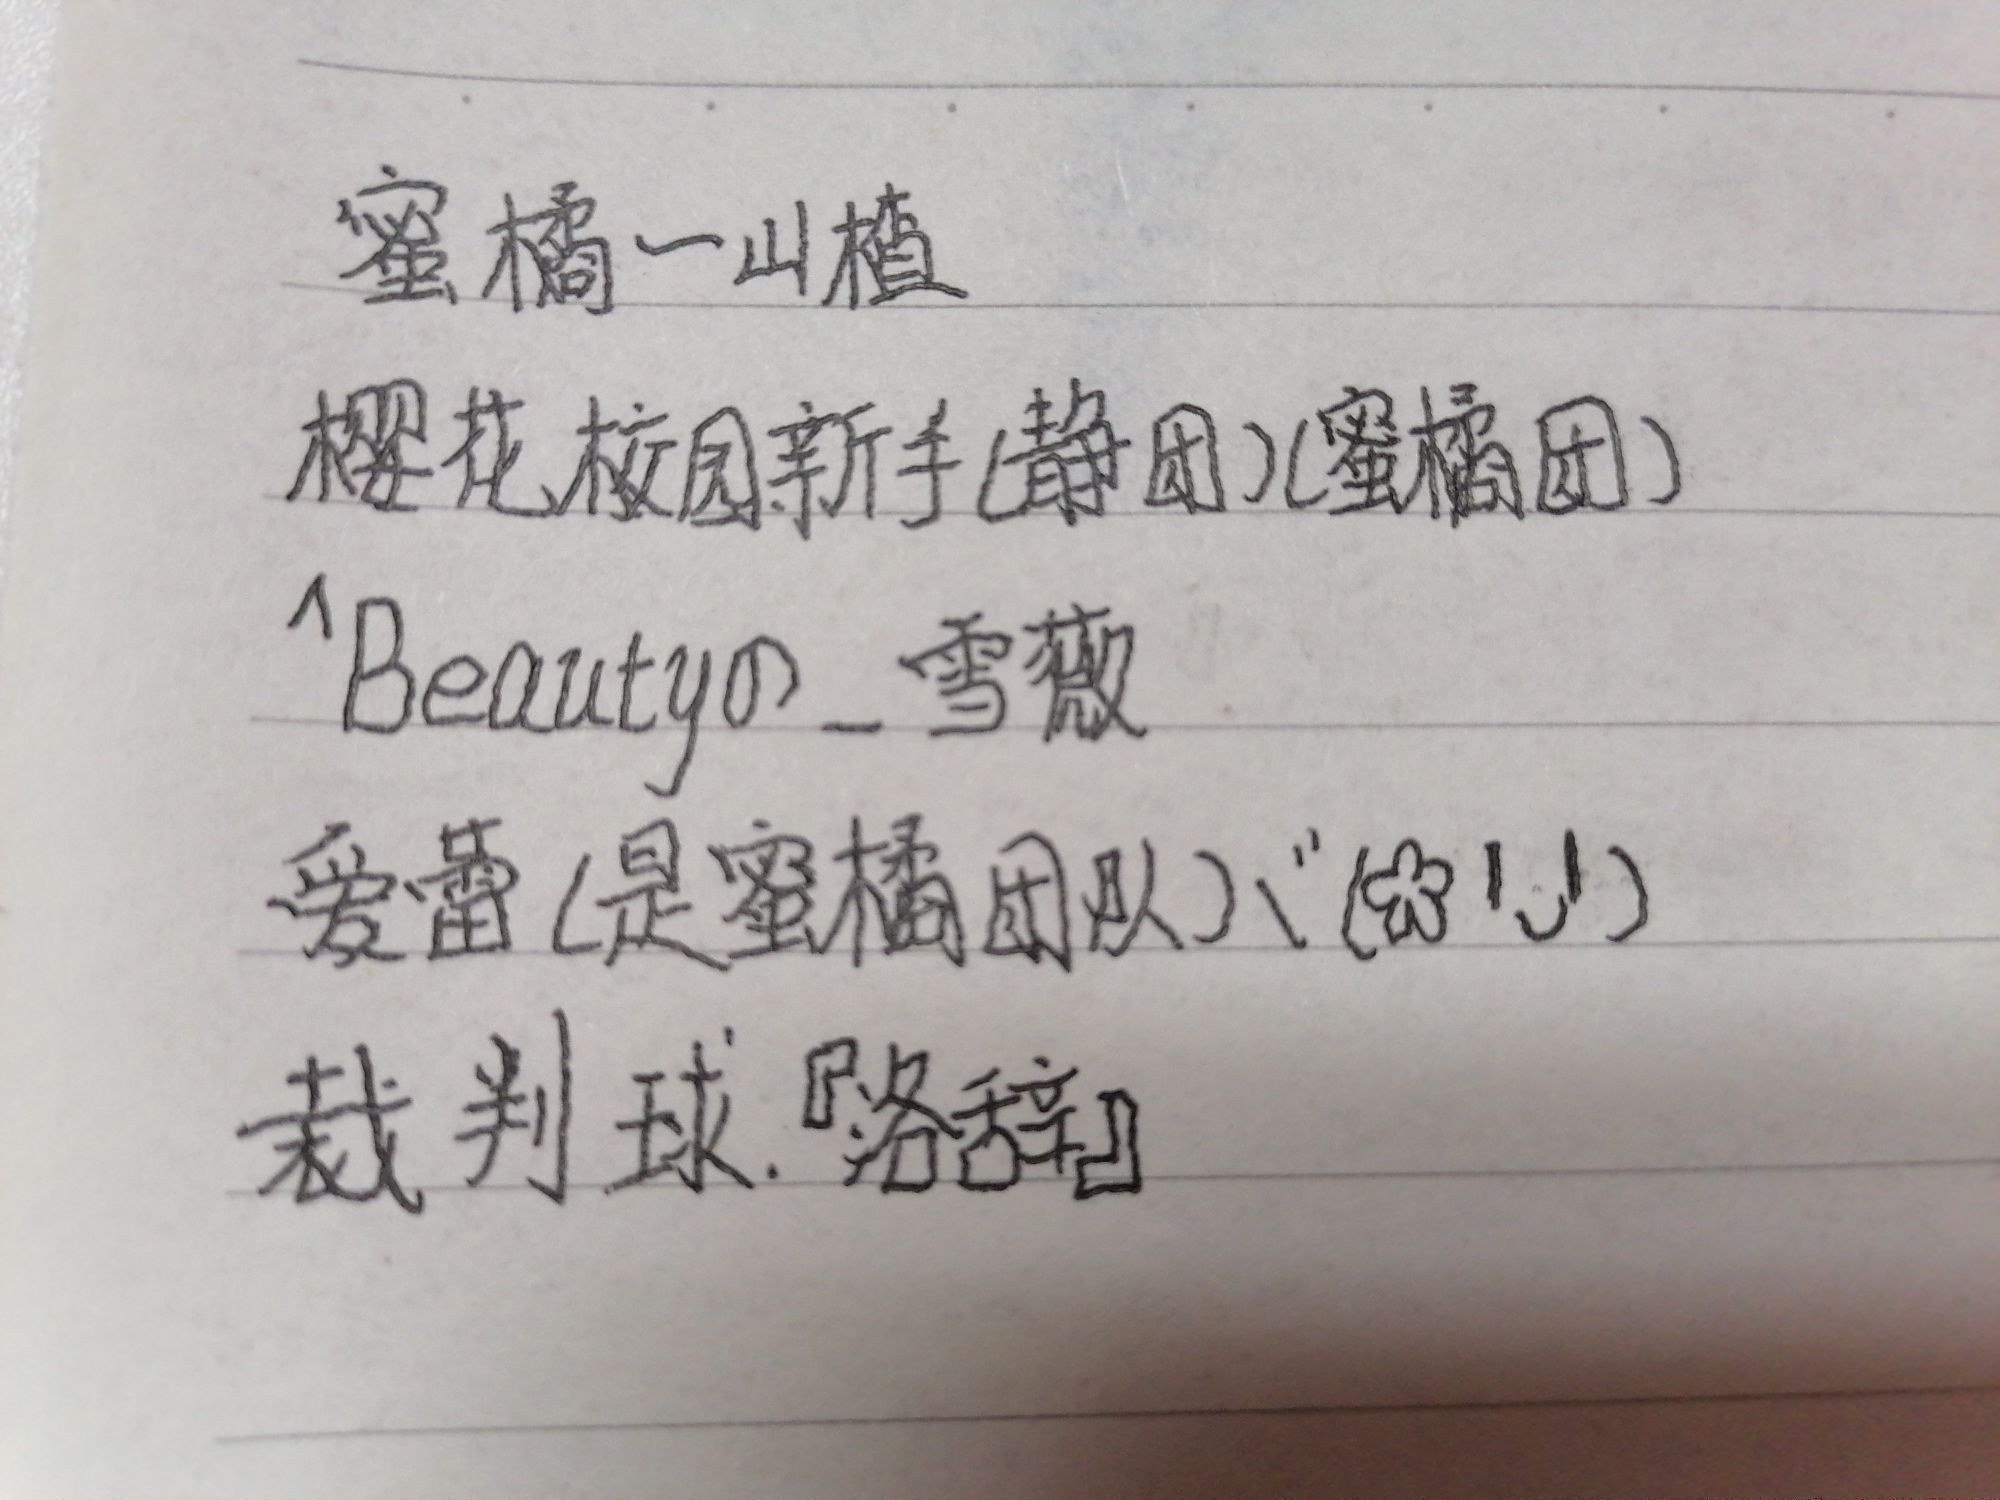 蜜橘一山楂
樱花校园新手(静团)(蜜橘团)
^Beautyの_雪薇
爱蕾(是蜜橘团队)ヾ(✿╹◡╹)
裁判球.『洛辞』